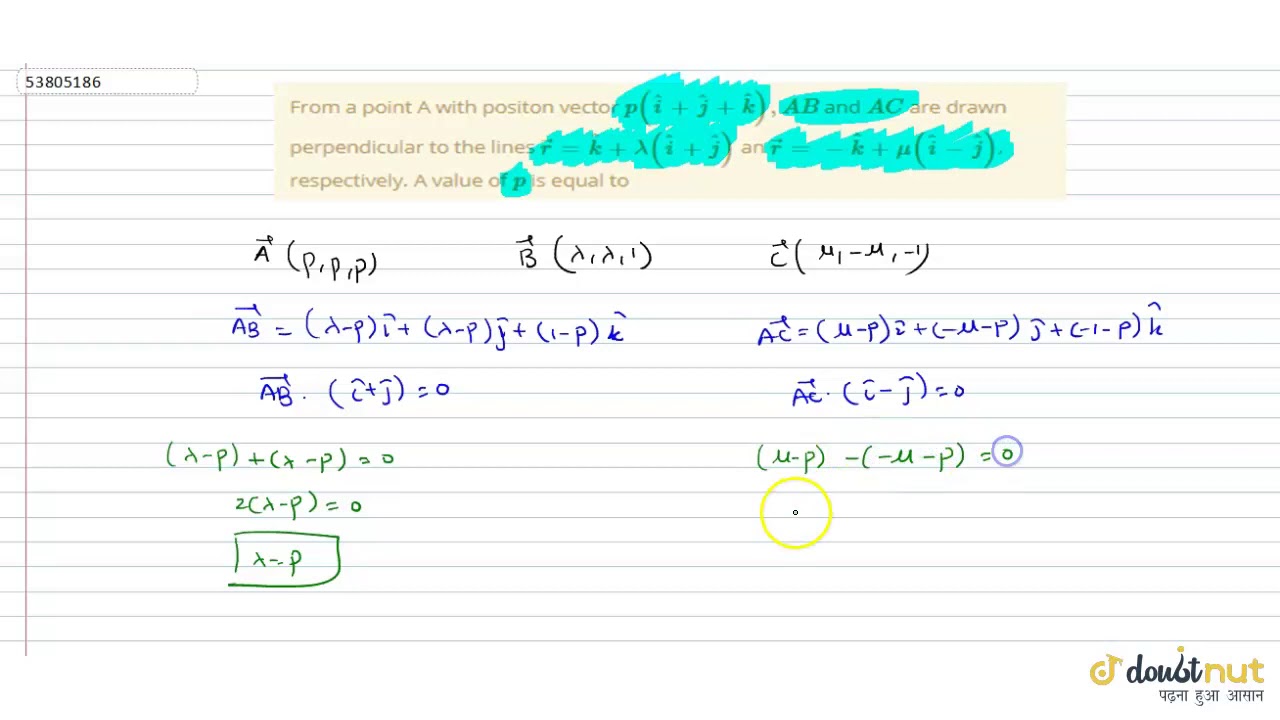 53805186
From a point A with positon vector p(î + ĵ + k̂), AB and AC are drawn
perpendicular to the lines r⃗ = k̂ + λ(î + ĵ) and r⃗ = −k̂ + μ(î − ĵ),
respectively. A value of p is equal to
A⃗ (p, p, p) B⃗ (λ, λ, 1) C⃗ (μ, −μ, −1)
AB⃗ = (λ−p)î + (λ−p)ĵ + (1−p)k̂ AC⃗ = (μ−p)î + (−μ−p)ĵ + (−1−p)k̂
AB⃗ · (î+ĵ) = 0 AC⃗ · (î−ĵ) = 0
(λ−p) + (λ−p) = 0 (μ−p) −(−μ−p) = 0
2(λ−p) = 0
λ = p
doubtnut
पढ़ना हुआ आसान